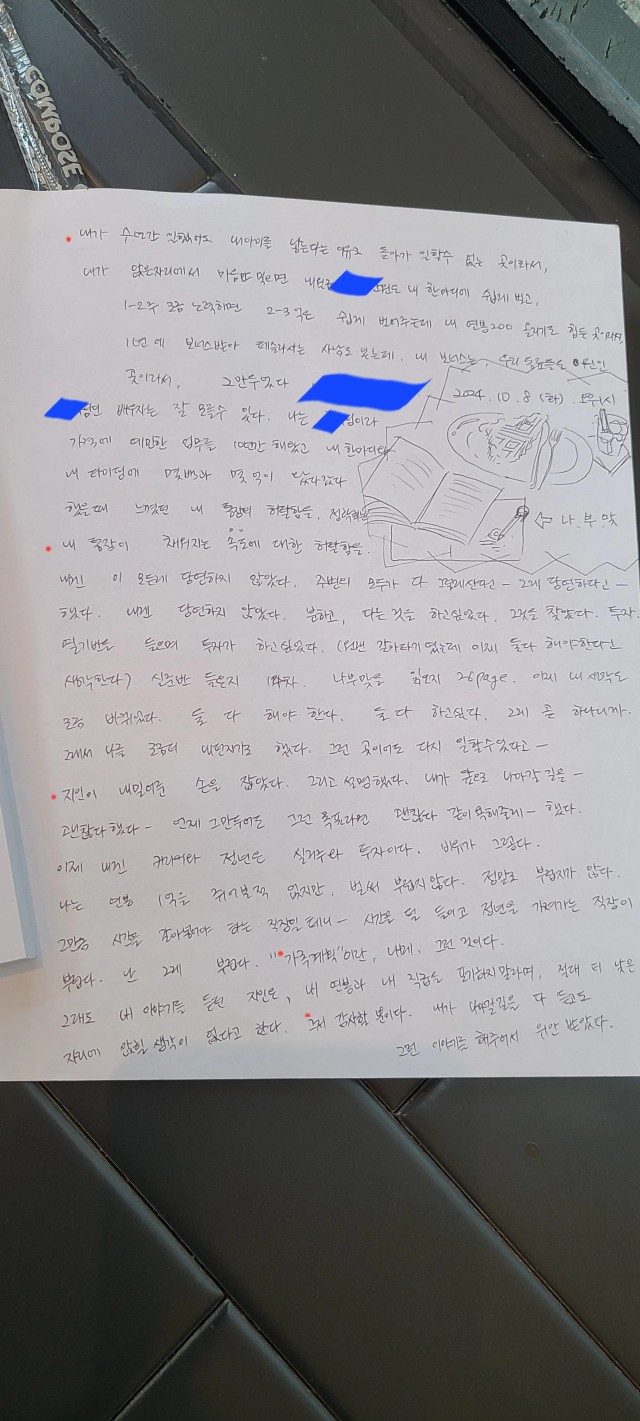 COMPOSE
내가 수년간 일했어도 내아이를 낳는다는 이유로 돌아가 일할수 없는 곳이라서,
내가 앉은자리에서 마음만 먹으면 내 한마디에 쉽게 벌고,
1-2주 조금 노력하면 2-3억은 쉽게 벌어주는데 내 연봉200 올리기도 힘든 곳이라서
1년에 보너스받아 테슬라사는 사람도 있는데, 내 보너스는, 우리 동료들도
곳이라서, 그만두었다
2024. 10. 8 (화).
배우자는 잘 모를수 있다. 나는
가격에 예민한 업무를 10년간 해왔고 내 한마디와
내 타이핑에 몇백과 몇 억이 왔다갔다
했을때 느꼈던 내 통장의 허탈함을, 정확히는
⇦ 나.부.맛
내 통장이 채워지는 속도에 대한 허탈함을.
내겐 이 모든게 당연하지 않았다. 주변의 모두가 다 그렇게산다고 - 그게 당연하다고 -
했다. 내겐 당연하지 않았다. 분하고, 다른것을 하고싶었다. 그것을 찾았다. 투자.
열기반을 들으며 투자가 하고싶었다. (원랜 갈아타기였는데 이제 둘다 해야한다고
생각한다) 신준반 들은지 나부맛을 읽은지 26page. 이제 내 생각도
조금 바뀌었다. 둘 다 해야 한다. 둘 다 하고싶다. 그게 곧 하나니까.
그래서 나를 조금더 내던지기로 했다. 그런 곳이어도 다시 일할수있다고 -
지인이 내밀어준 손을 잡았다. 그리고 설명했다. 내가 앞으로 나아갈 길은 -
괜찮다했다 - 언제 그만두어도 그런 목표라면 괜찮다 했다.
이제 내겐 커리어와 정년은 실거주와 투자이다. 바뀌가 그렇다.
나는 연봉 1억을 쥐어본적 없지만, 벌써 부럽지않다. 정말로 부럽지가 않다.
그만큼 시간을 갈아넣어야 하는 직장일테니 - 시간을 덜 들이고 정년을 가져가는 직장이
부럽다. 난 그게 부럽다. "가족계획"이란, 내게, 그런 것이다.
그래도 내 이야기를 듣던 지인은, 내 연봉과 내 직급을 포기하지말라며, 절대 더 낮은
자리에 앉힐 생각이 없다고 한다. 그저 감사할 뿐이다. 내가 내길을 다 듣고도
그런 이야기를 해주어서 위안 받았다.